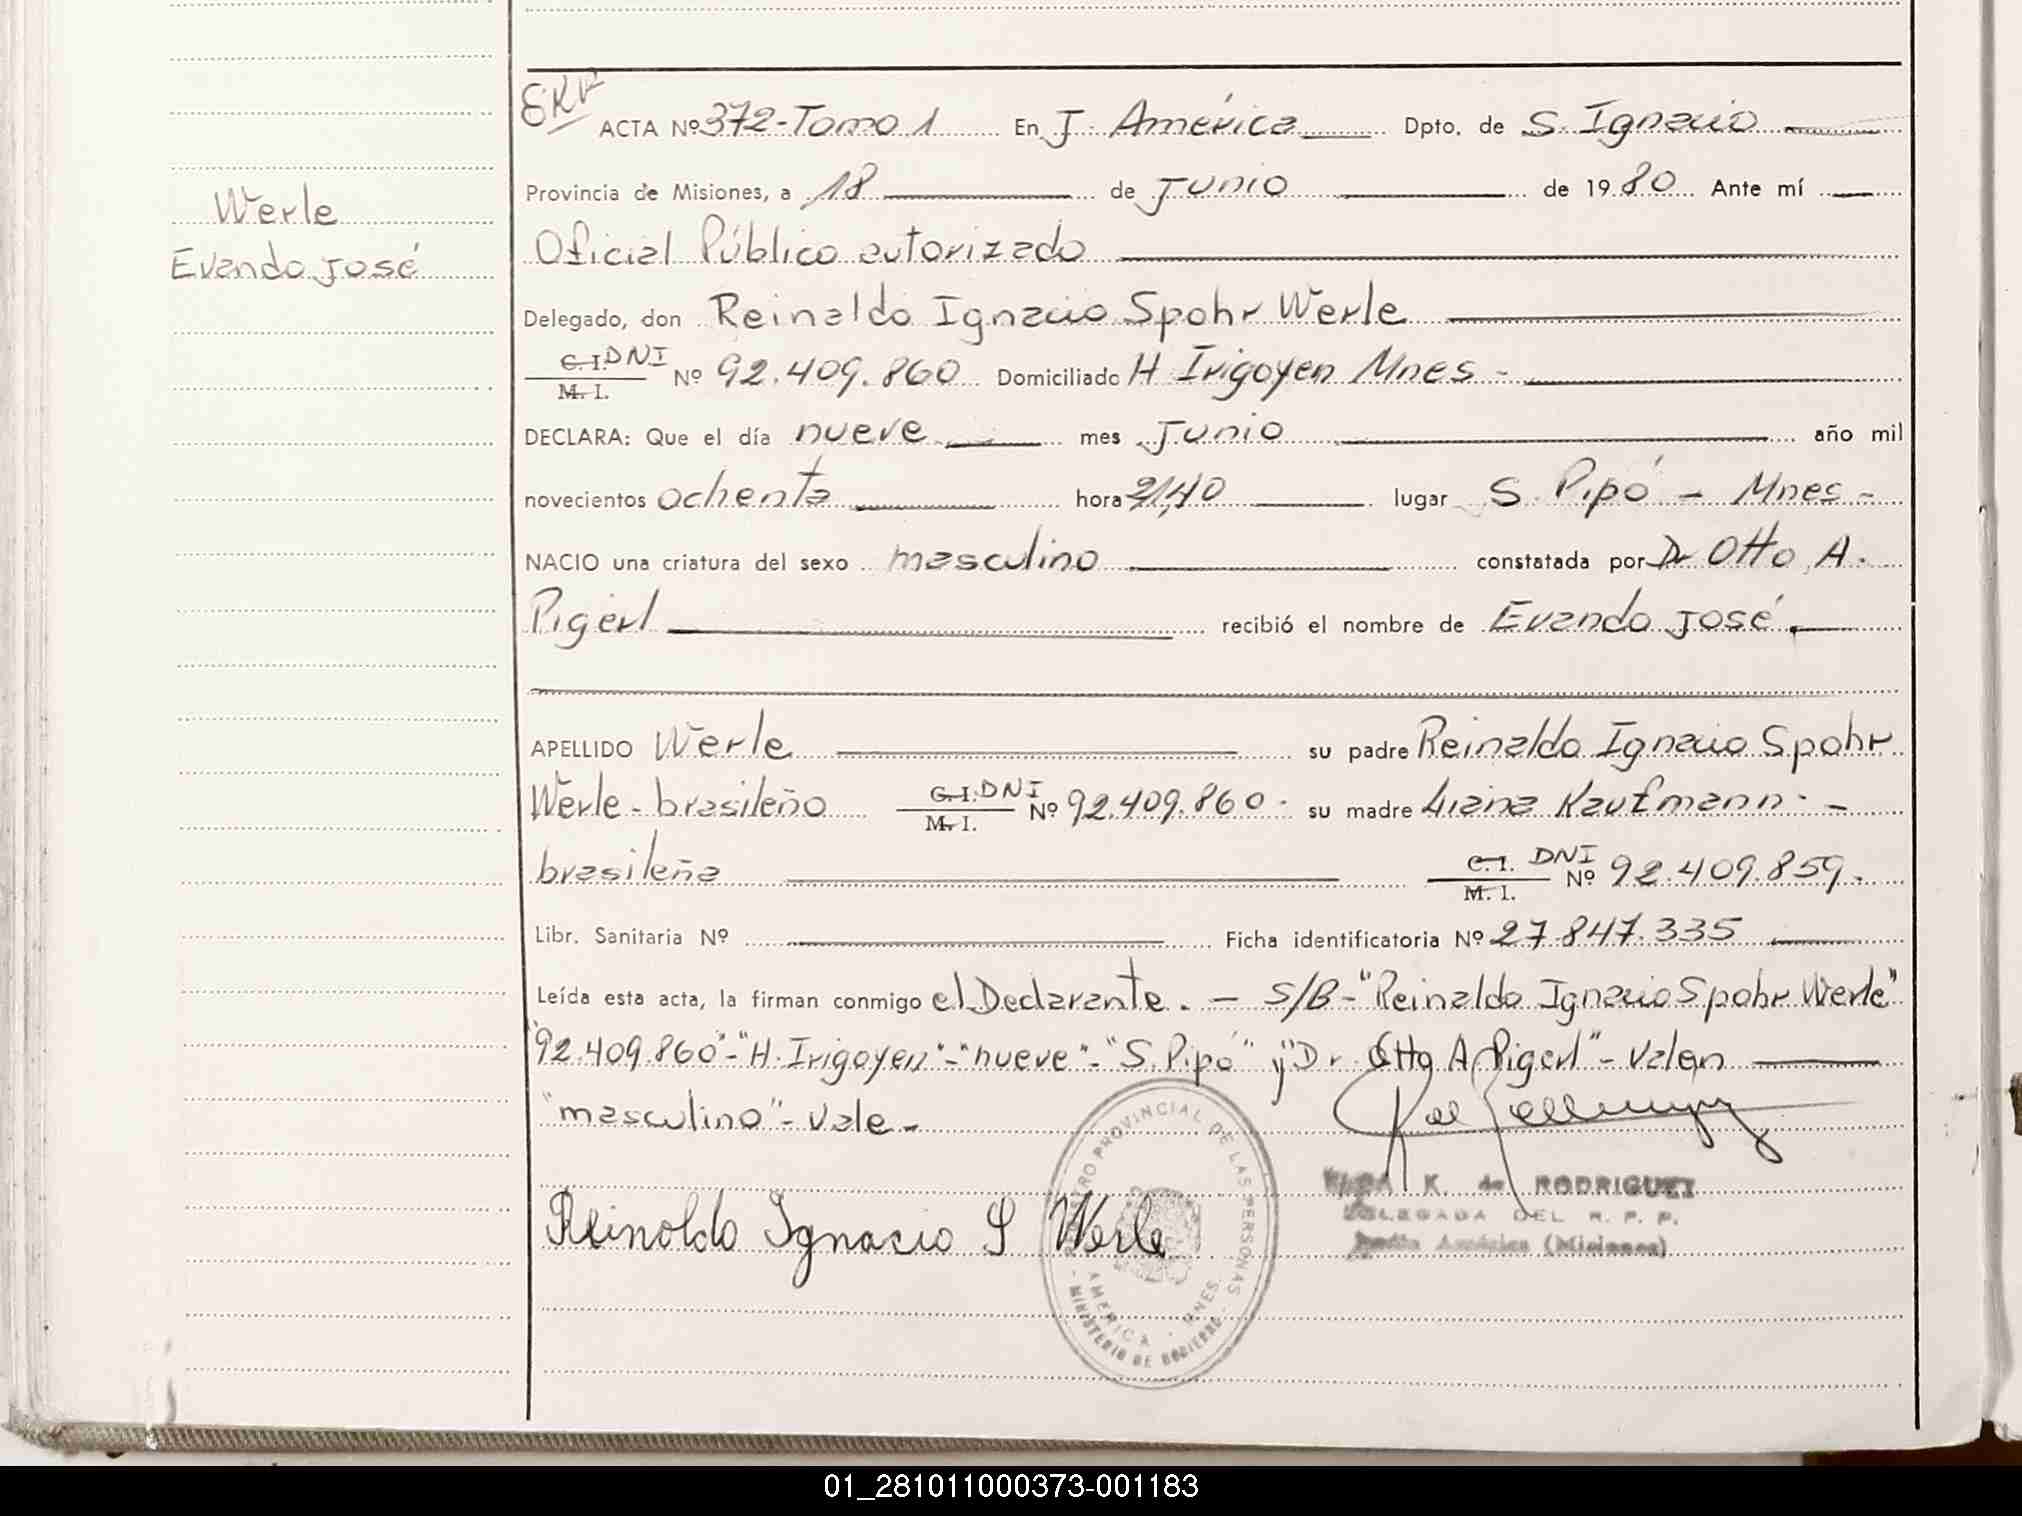 EKV
ACTA Nº 372-Tomo 1 En J. América Dpto. de S. Ignacio
Provincia de Misiones, a 18 de Junio de 1980 Ante mí
Werle
Oficial Público autorizado
Evando José
Delegado, don Reinaldo Ignacio Spohr Werle
C.I. DNI
M. I. Nº 92.409.860 Domiciliado H Irigoyen Mnes -
DECLARA: Que el día nueve mes Junio año mil
novecientos ochenta hora 21,40 lugar S. Pipó - Mnes -
NACIO una criatura del sexo masculino constatada por Dr Otto A.
Pigerl recibió el nombre de Evando José.
APELLIDO Werle su padre Reinaldo Ignacio Spohr
Werle - brasileño C.I. DNI M. I. Nº 92.409.860. su madre Liana Kaufmann. -
brasileña C.I. DNI M. I. Nº 92.409.859.
Libr. Sanitaria Nº Ficha identificatoria Nº 27.847.335
Leída esta acta, la firman conmigo el Declarante. - S/B - "Reinaldo Ignacio Spohr Werle"
"92.409.860" - "H. Irigoyen" - "nueve" - "S. Pipó" y "Dr. Otto A Pigerl" - Valen
"masculino" - Vale -
Reinoldo Ignacio S Werle
REGISTRO PROVINCIAL DE LAS PERSONAS
AMERICA - MNES.
- MINISTERIO DE GOBIERNO -
K. de RODRIGUEZ
DELEGADA DEL R. P. P.
Jardín América (Misiones)
01_281011000373-001183